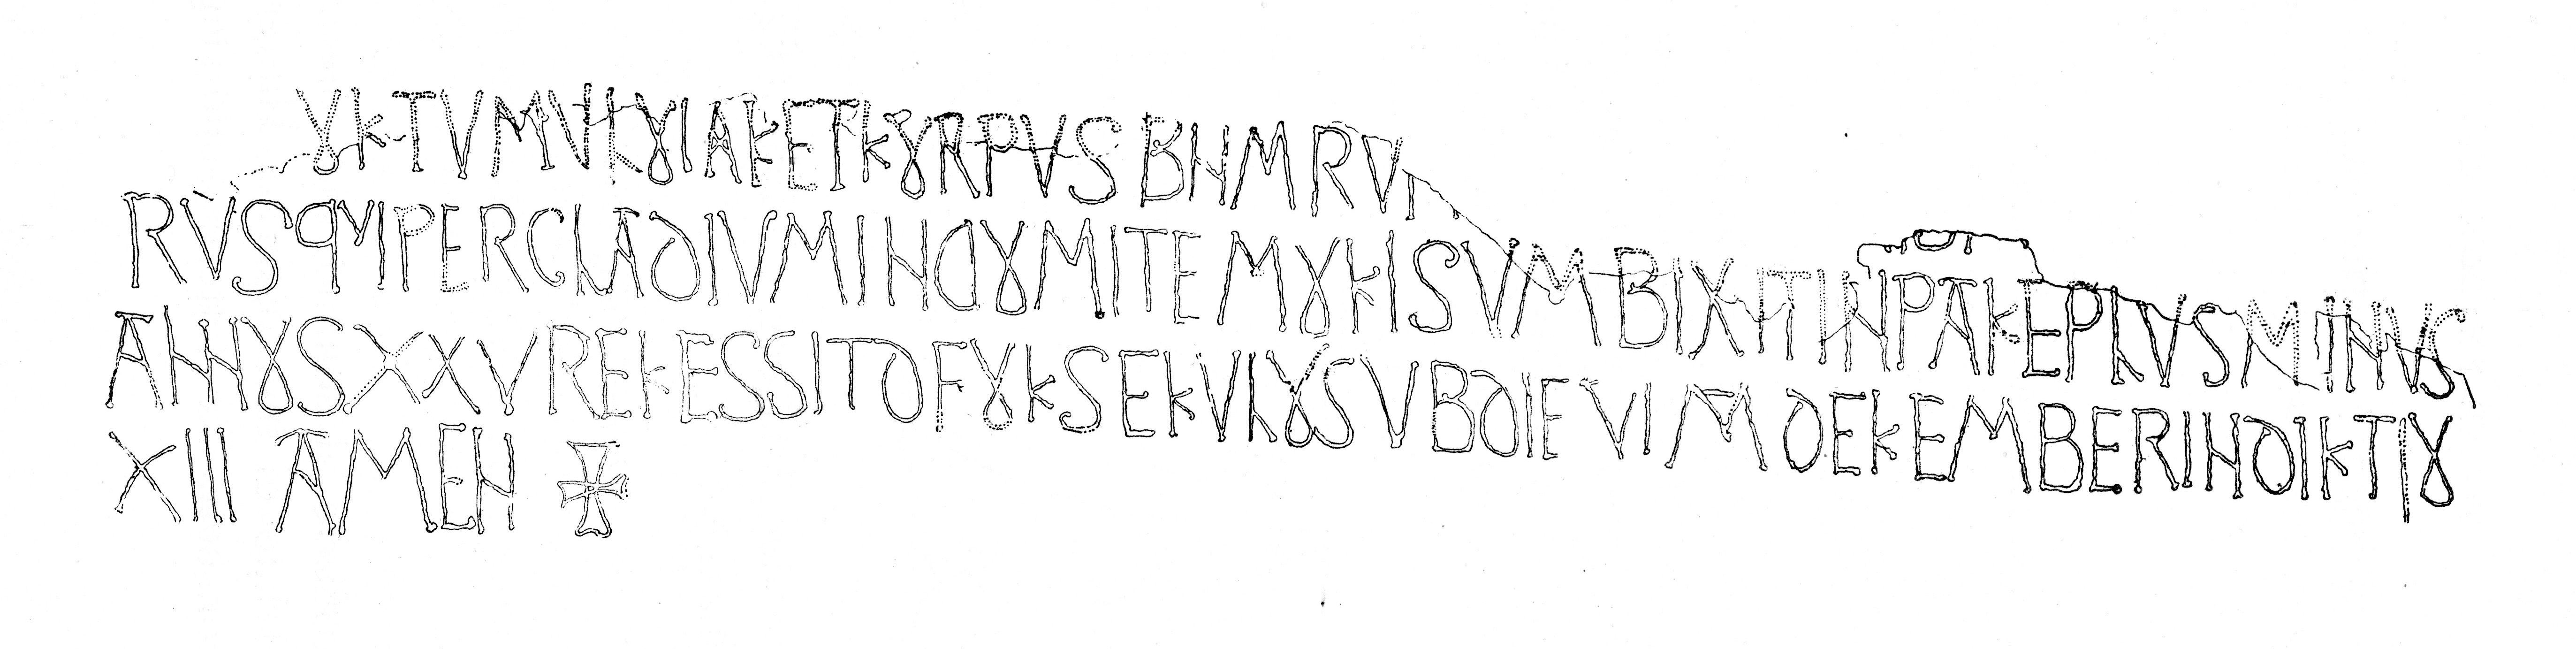 OKTVMVLOIAKETKORPVS BHMRVI
RVSQVIPERCLADIVMINDOMITE MOKISVM BIXITINPAKEPLVSMINVS
ANNOSXXVREKESSITDFOKSEKVLOSVBDIE VI M DEKEMBERINDIKTIO
XIII AMEN ✠